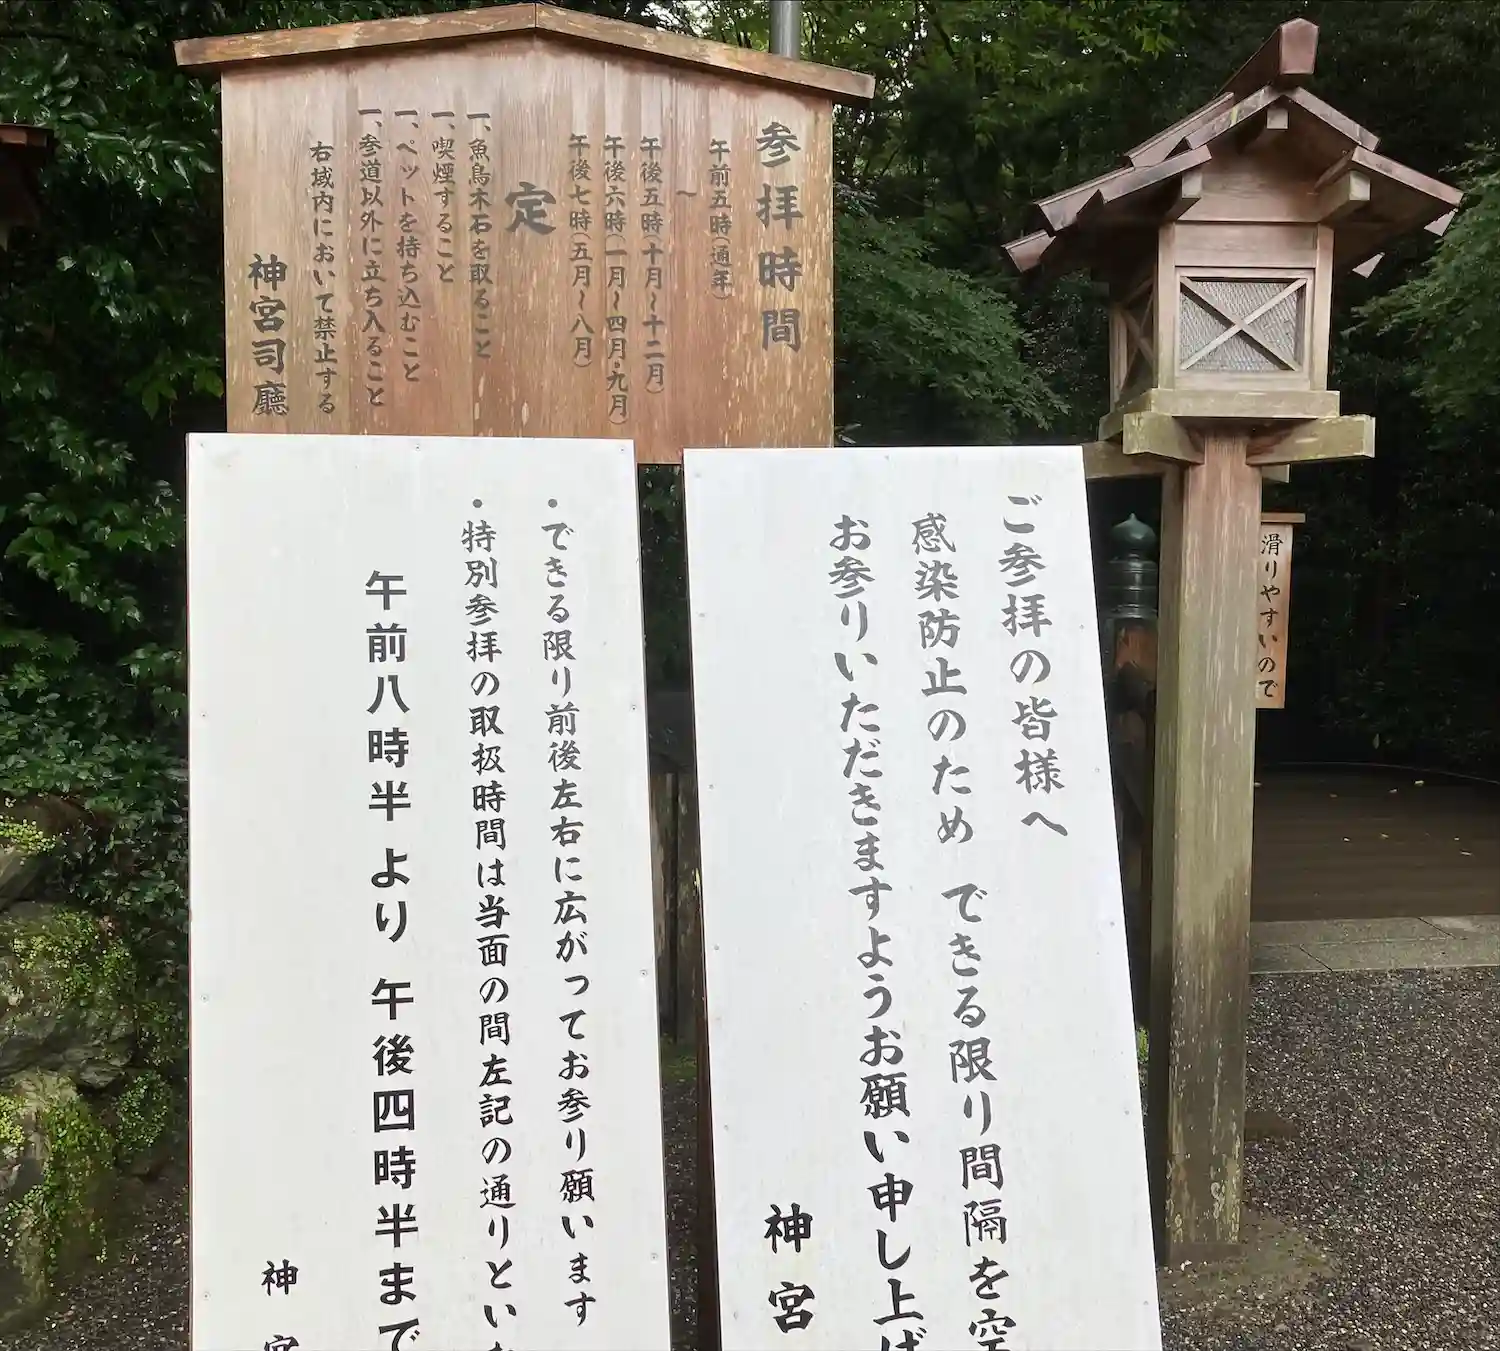 参拝時間
午前五時（通年）
〜
午後五時（十月〜十二月）
午後六時（一月〜四月・九月）
午後七時（五月〜八月）
定
一、魚鳥木石を取ること
一、喫煙すること
一、ペットを持ち込むこと
一、参道以外に立ち入ること
右域内において禁止する
神宮司廳
ご参拝の皆様へ
感染防止のため　できる限り間隔を空
お参りいただきますようお願い申し上げ
神宮
・できる限り前後左右に広がってお参り願います
・特別参拝の取扱時間は当面の間左記の通りといた
午前八時半より　午後四時半まで
神宮
滑りやすいので